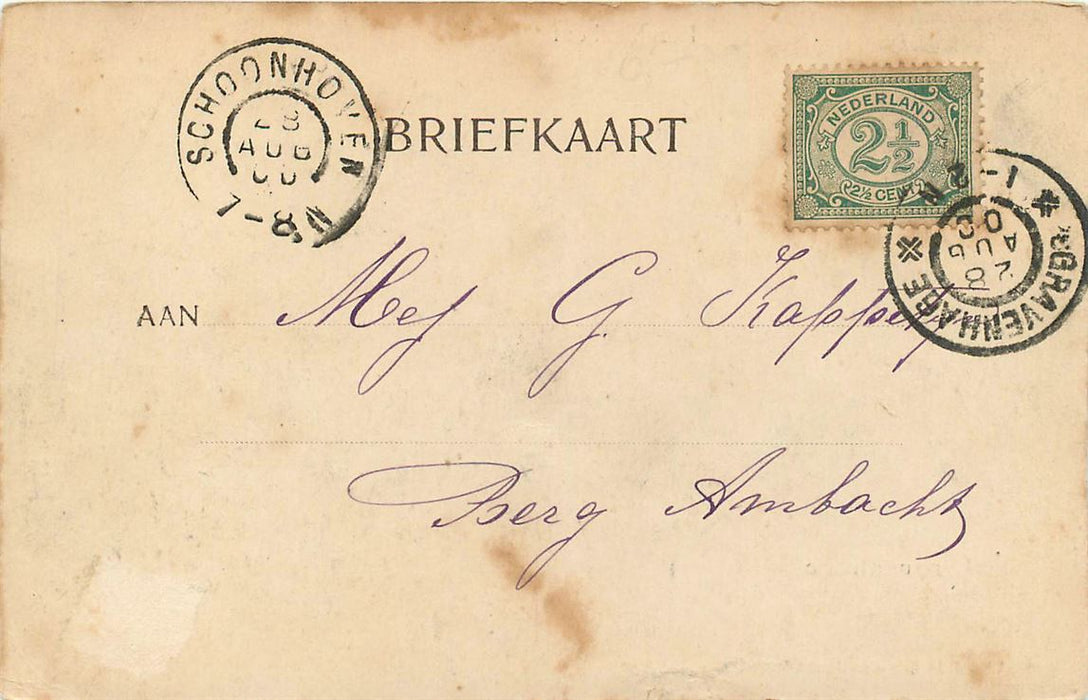 SCHOONHOVEN
28
AUG
00
7-8 N
BRIEFKAART
NEDERLAND
2 1/2
2½ CENT
1-2 N
'sGRAVENHAGE
28
AUG
00
AAN Mej G. Kapper
Berg Ambacht